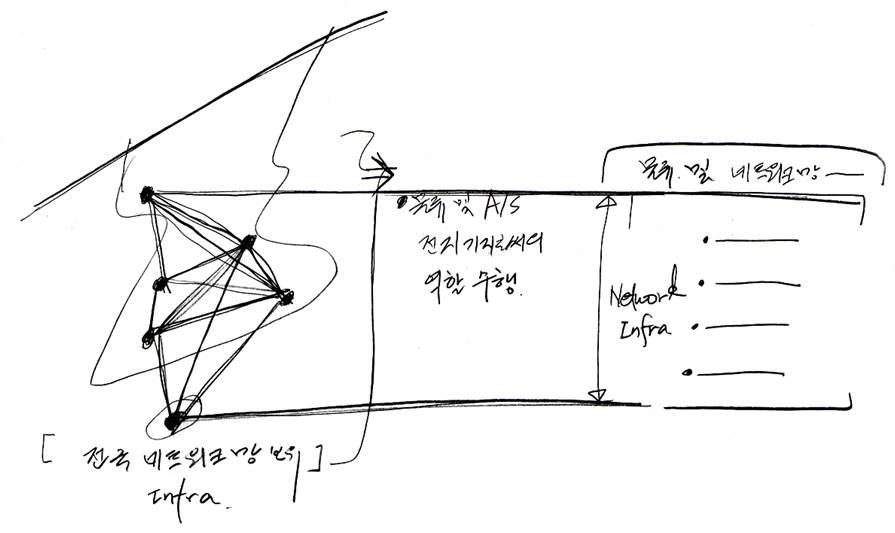 물류 및 네트워크망
• 물류 및 A/S
전진기지로써의
역할 수행.
Network
Infra
[ 전국 네트워크망 및 ]
Infra.